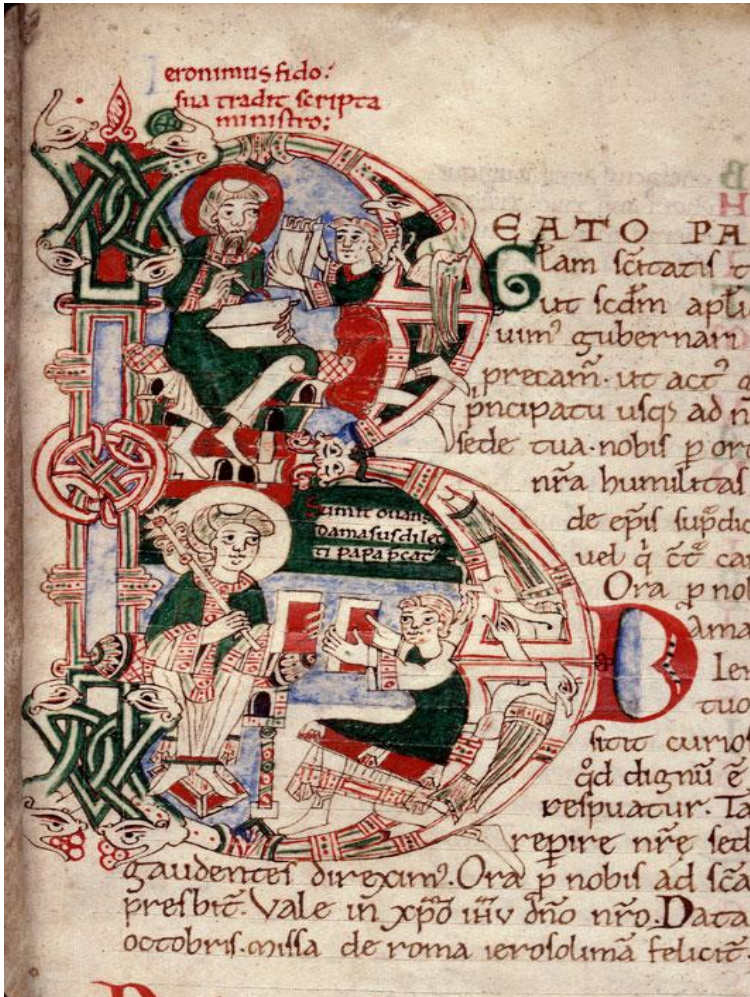 Ieronimus fido:
sua tradit scripta
ministro:
Sumit ouans
Damasus dilec
ti papa
BEATO PA
Glam sc̄itatis
ut scdm̄ apl̄i
uim' gubernari
precam̄. ut act'
pncipatu usq; ad n
sede tua. nobis p̱ ort
nr̄a humilitas
de ep̄is sup̄dic
uel
Ora p̱ no
Dama
Ier
tuo
sitit curios
qd̄ dignū ē
respuatur. Ta
repire nr̄ę sed
gaudentes direxim'. Ora p̱ nobis ad sc̄a
presbit̄. Vale in xp̄o ih̄u dn̄o nr̄o. Data
octobris. missa de roma ierosolimā felicit̄.